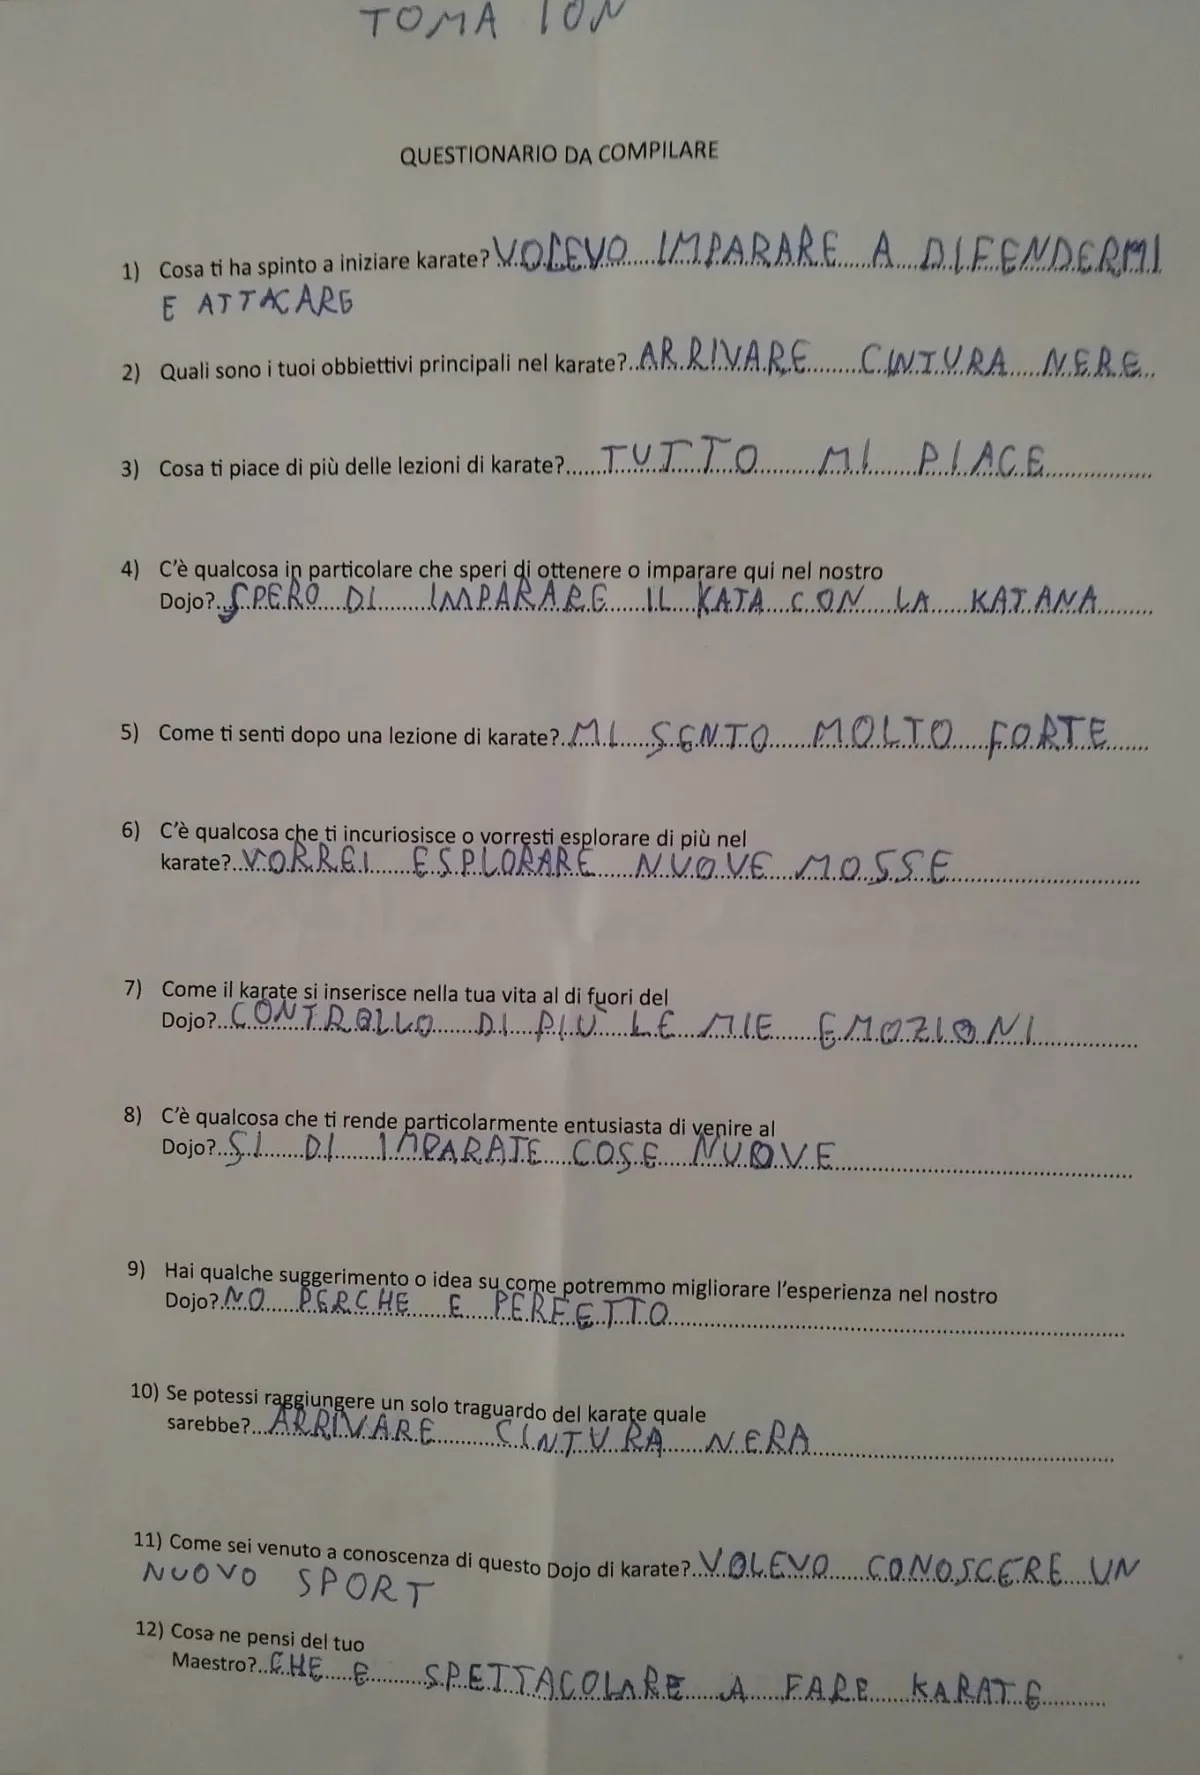 TOMA ION
QUESTIONARIO DA COMPILARE
1) Cosa ti ha spinto a iniziare karate? VOLEVO IMPARARE A DIFENDERMI
E ATTACARE
2) Quali sono i tuoi obbiettivi principali nel karate? ARRIVARE CINTURA NERE
3) Cosa ti piace di più delle lezioni di karate? TUTTO MI PIACE
4) C'è qualcosa in particolare che speri di ottenere o imparare qui nel nostro
Dojo? SPERO DI IMPARARE IL KATA CON LA KATANA
5) Come ti senti dopo una lezione di karate? MI SENTO MOLTO FORTE
6) C'è qualcosa che ti incuriosisce o vorresti esplorare di più nel
karate? VORREI ESPLORARE NUOVE MOSSE
7) Come il karate si inserisce nella tua vita al di fuori del
Dojo? CONTROLLO DI PIÙ LE MIE EMOZIONI
8) C'è qualcosa che ti rende particolarmente entusiasta di venire al
Dojo? SI DI IMPARATE COSE NUOVE
9) Hai qualche suggerimento o idea su come potremmo migliorare l'esperienza nel nostro
Dojo? NO PERCHE E PERFETTO
10) Se potessi raggiungere un solo traguardo del karate quale
sarebbe? ARRIVARE CINTURA NERA
11) Come sei venuto a conoscenza di questo Dojo di karate? VOLEVO CONOSCERE UN
NUOVO SPORT
12) Cosa ne pensi del tuo
Maestro? CHE E SPETTACOLARE A FARE KARATE